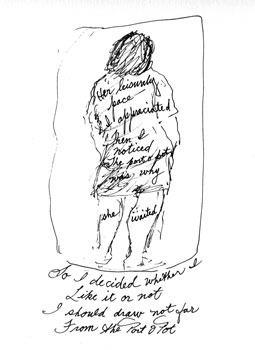 Her leisurely
pace
I appreciated
Then I
noticed
The port o pot
was why
she waited
So I decided whether I
Like it or not
I should draw not far
From the Port O Pot